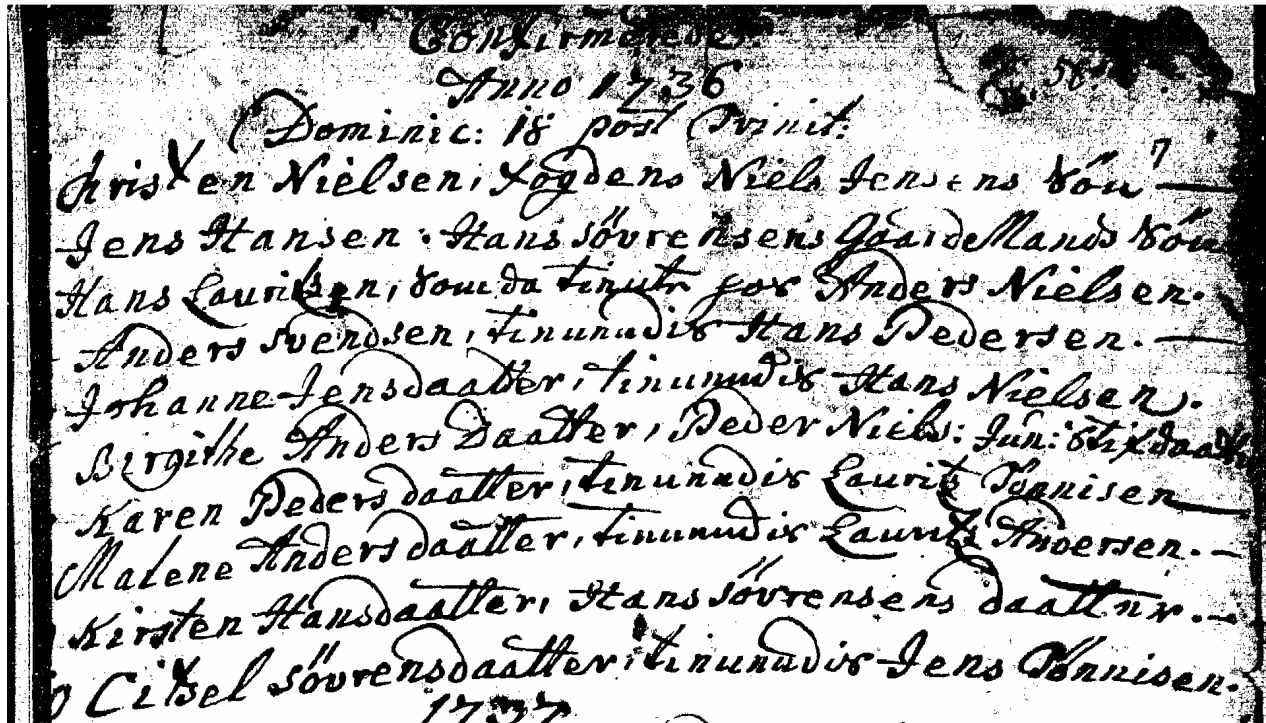 Confirmerede.
Anno 1736
58.
Dominic: 18 post Trinit:
Christen Nielsen, Fogdens Niels Jensens Sön
Jens Hansen. Hans Sövrensens Gaardemands Sön
Hans Lauritsen, som da tiente hos Anders Nielsen.
Anders Svendsen, tienendis Hans Pedersen.
Johanne Jensdaatter, tienendis Hans Nielsen.
Birgithe Anders Daatter, Peder Niels: Jun: Stifdaatter
Karen Pedersdaatter, tienendis Laurits Tönnisen
Malene Andersdaatter, tienendis Laurits Andersen.
Kirsten Hansdaatter, Hans Sövrensens daatter.
Citsel Sövrensdaatter, tienendis Jens Tönnisen.
1737